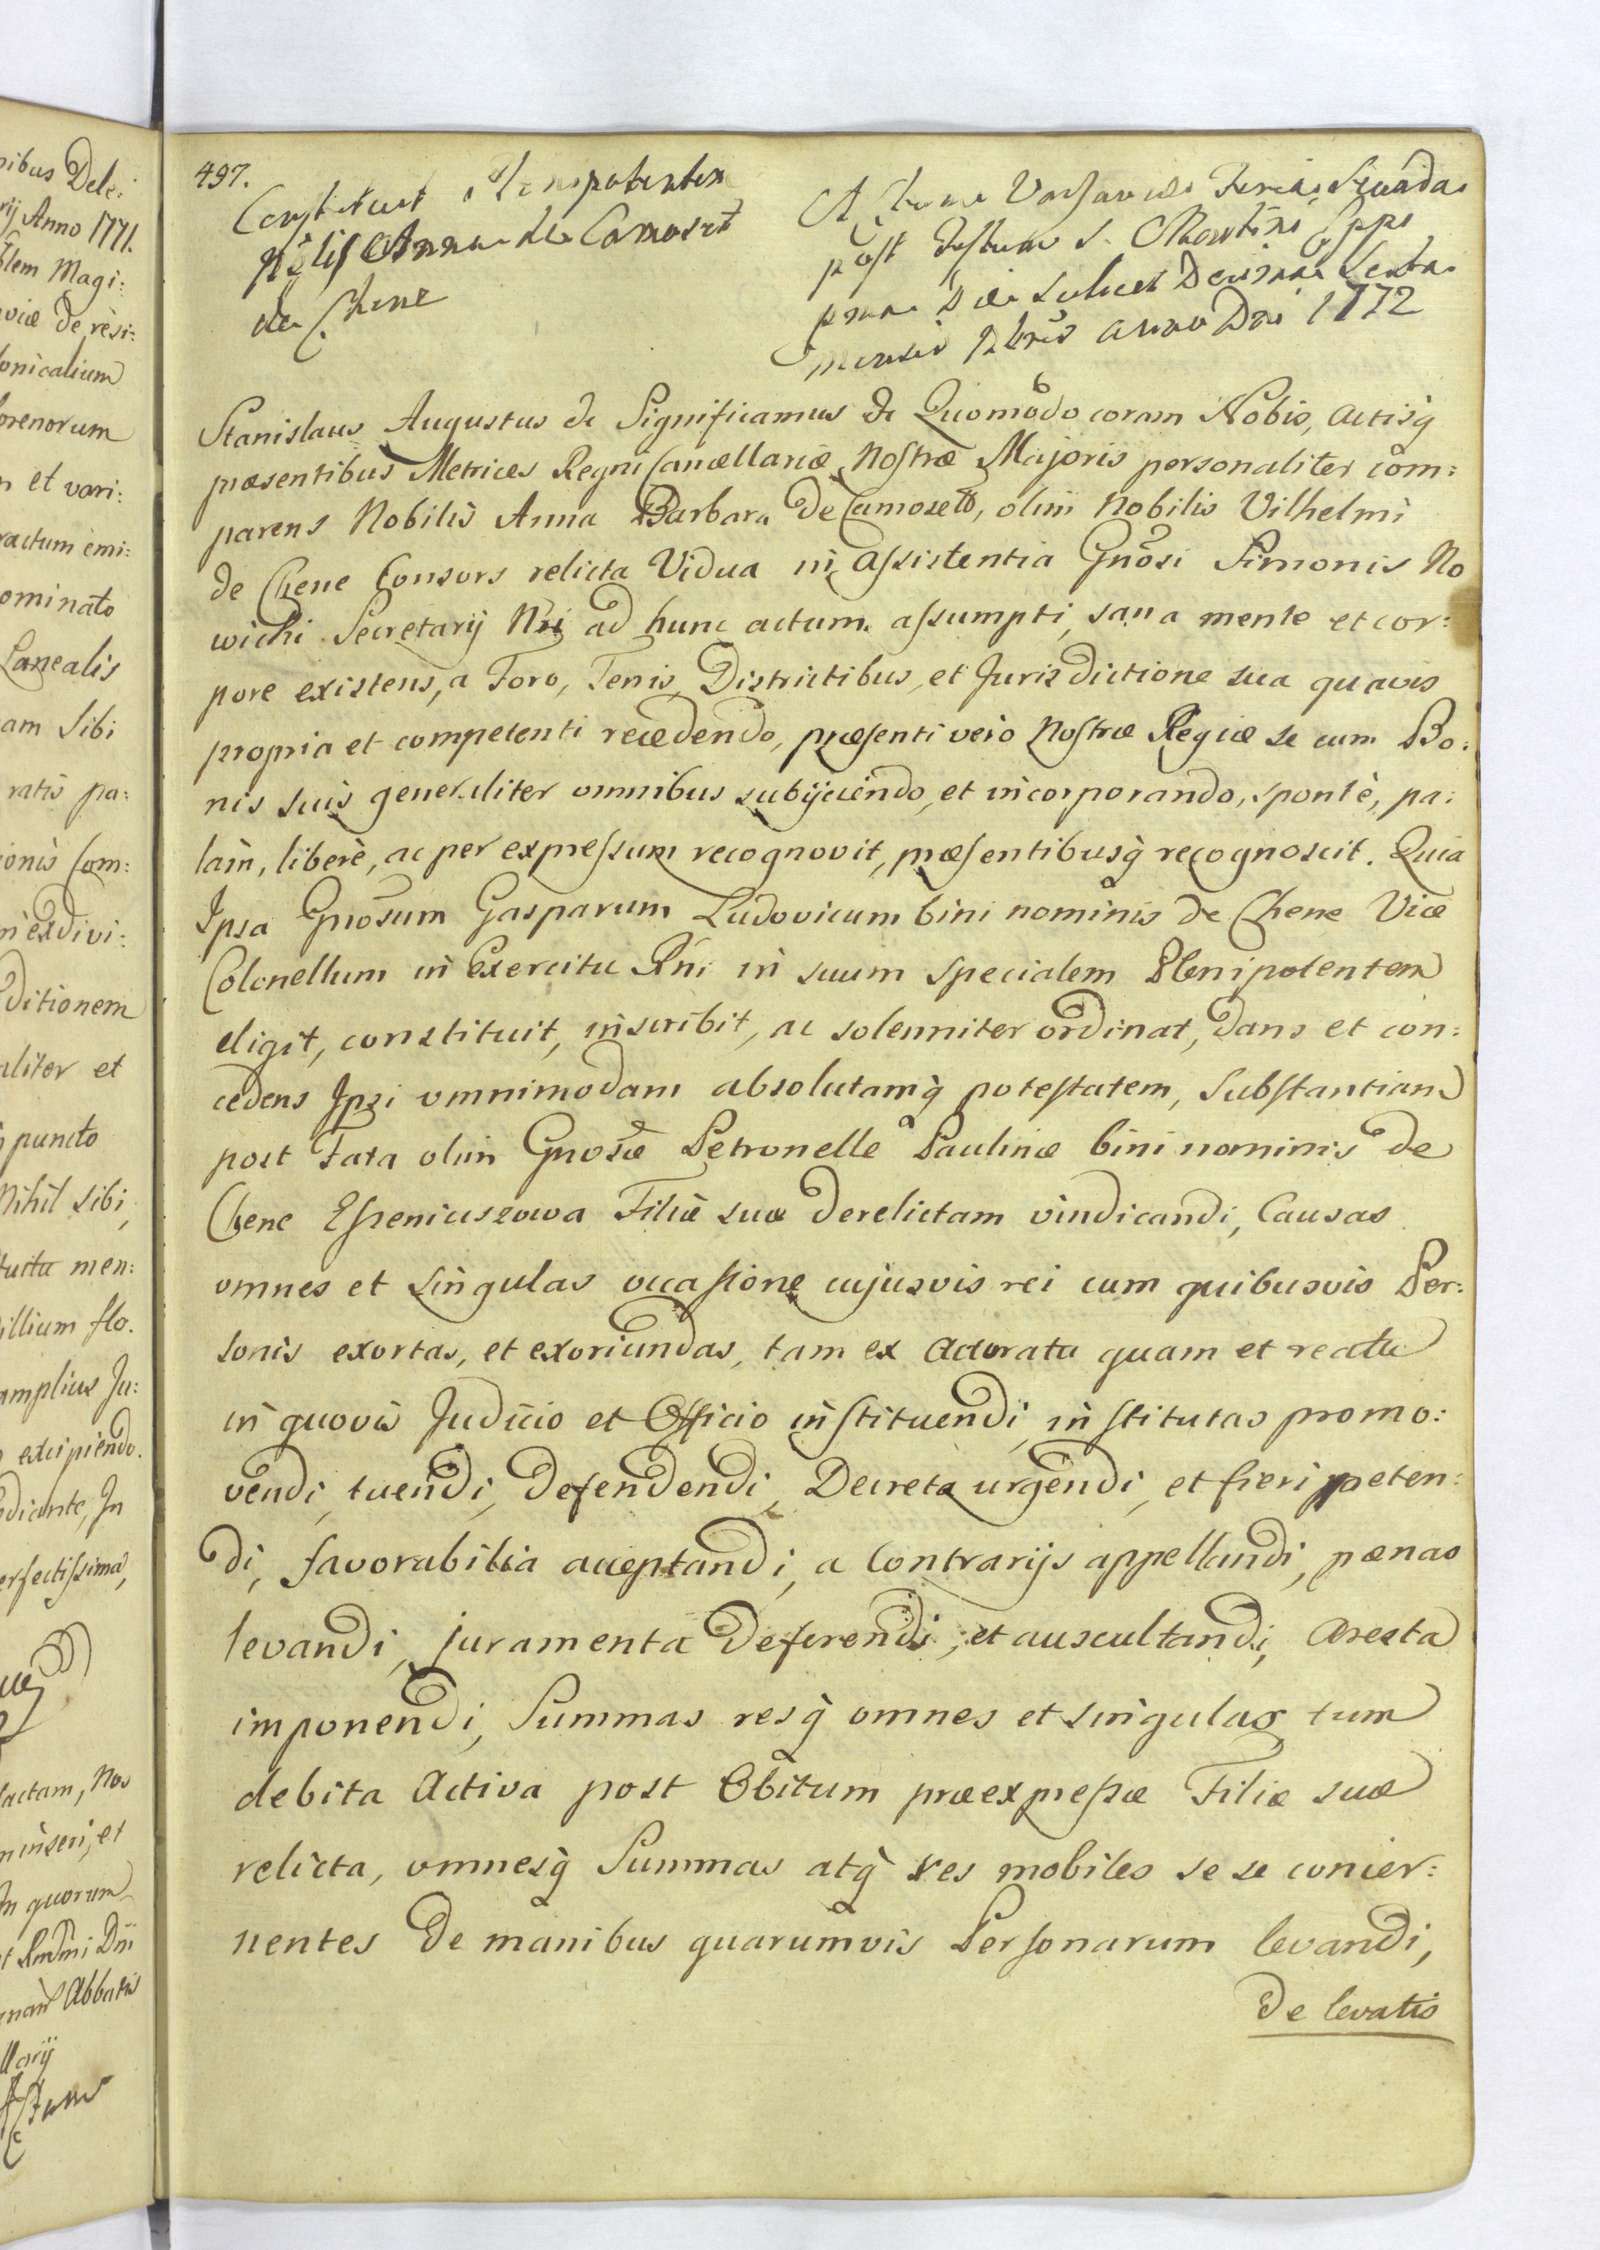 497.
Constituit Plenipotentem
Nblis Anna de Camosett
de Chene
Actum Varsaviæ Feria Secunda
post Festum S. Martini Eppi
prma Die scilicet Decima Sexta
mensis Nbris anno Dni 1772
Stanislaus Augustus &c Significamus &c Quomodo coram Nobis, actisq̀
præsentibus Metrices Regni Cancellariæ Nostræ Majoris personaliter com:
parens Nobilis Anna Barbara de Camosett, olim Nobilis Vilhelmi
de Chene Consors relicta Vidua in Assistentia Gnosi Simonis No
wichi Secretarij Nri ad hunc actum assumpti, sana mente et cor:
pore existens, a Foro, Terris, Districtibus, et Jurisdictione sua quavis
propria et competenti recedendo, præsenti vero Nostræ Regiæ se cum Bo:
nis suis generaliter omnibus subijciendo, et incorporando, sponte, pa:
lam, libere, ac per expressum recognovit, præsentibusq̀ recognoscit. Quia
Ipsa Gnosum Gasparum Ludovicum bini nominis de Chene Vice
Colonellum in Exercitu Rni in suum specialem Plenipotentem
eligit, constituit, inscribit, ac solenniter ordinat, dans et con:
cedens Ipsi omnimodam absolutamq̀ potestatem, Substantiam
post Fata olim Gnosæ Petronelle Paulinæ bini nominis de
Chene Espeniuszowa Filiæ suæ derelictam vindicandi, Causas
omnes et singulas occasione cujusvis rei cum quibusvis Per:
sonis exortas, et exoriundas, tam ex Actoratu quam et reatu
in quovis Judicio et Officio instituendi, institutas promo:
vendi, tuendi, defendendi, Decreta urgendi, et fieri peten:
di, favorabilia acceptandi, a Contrarijs appellandi, pænas
levandi, juramenta deferendi, et auscultandi, Aresta
imponendi, Summas resq̀ omnes et singulas tum
debita Activa post Obitum præexpressæ Filiæ suæ
relicta, omnesq̀ Summas atq̀ res mobiles se se concer:
nentes de manibus quarumvis Personarum levandi,
de levatis